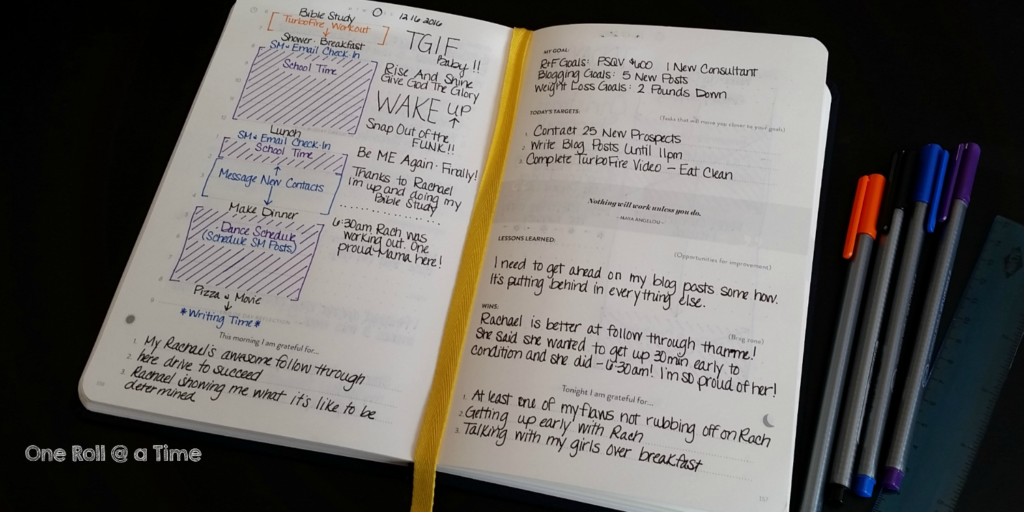 12 16 2016
Bible Study
TurboFire Workout
Shower · Breakfast
SM + Email Check-In
School Time
Lunch
SM + Email Check-In
School Time
Message New Contacts
Make Dinner
Dance Schedule
(Schedule SM Posts)
Pizza + Movie
*Writing Time*
TGIF
Baby!!
Rise And Shine
Give God The Glory
WAKE UP
Snap Out of the
FUNK!!
Be ME Again · Finally!
Thanks to Rachael
i'm up and doing my
Bible Study
6:30am Rach was
working out. One
proud Mama here!
This morning I am grateful for...
1. My Rachael's awesome follow through
2. here drive to succeed
3. Rachael showing me what it's like to be
determined
MY GOAL:
R+F Goals: PSQV $600 1 New Consultant
Blogging Goals: 5 New Posts
Weight Loss Goals: 2 Pounds Down
TODAY'S TARGETS:
(Tasks that will move you closer to your goals)
1. Contact 25 New Prospects
2. Write Blog Posts Until 11pm
3. Complete TurboFire Video - Eat Clean
Nothing will work unless you do.
- MAYA ANGELOU -
LESSONS LEARNED:
(Opportunities for improvement)
I need to get ahead on my blog posts some how.
It's putting behind in everything else.
WINS:
(Brag zone)
Rachael is better at follow through than me!
She said she wanted to get up 30min early to
condition and she did - 6:30am! I'm so proud of her!
Tonight I am grateful for...
1. At least one of my flaws not rubbing off on Rach
2. Getting up early with Rach
3. Talking with my girls over breakfast
157
One Roll @ a Time